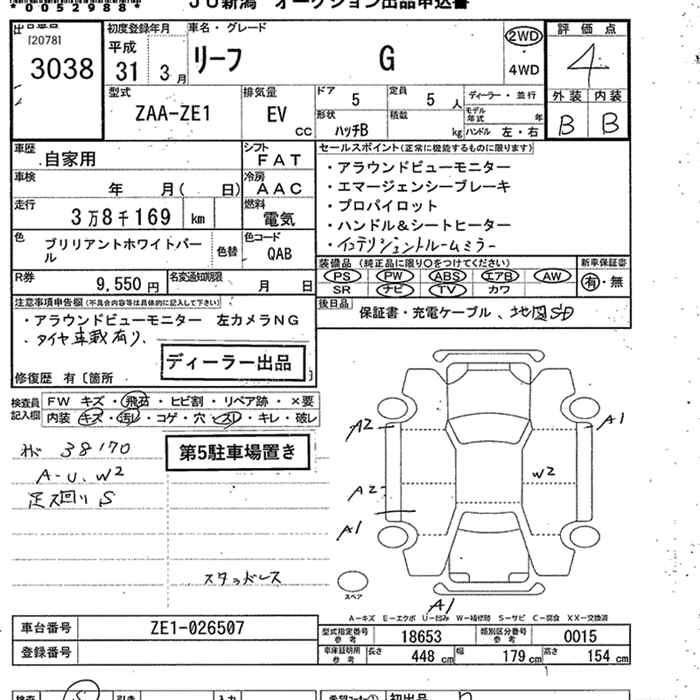 *0052988*
JU新潟 オークション出品申込書
[2078]
3038
初度登録年月
平成
31 3月
車名・グレード
リーフ G
2WD
4WD
評価点
4
外装 内装
B B
型式
ZAA-ZE1
排気量
EV
CC
ドア
5
定員
5 人
形状
ハッチB
積載
kg
ディーラー・並行
モデル年式 年
ハンドル 左・右
車歴
自家用
シフト
FAT
車検
年 月( 日)
冷房
AAC
走行
3万8千169 km
燃料
電気
色
ブリリアントホワイトパール
色替
色コード
QAB
R券
9,550円
名変通知期限
月 日
セールスポイント(正常に機能するものに限ります)
・アラウンドビューモニター
・エマージェンシーブレーキ
・プロパイロット
・ハンドル&シートヒーター
・インテリジェントルームミラー
装備品(純正品に限り○をつけてください)
PS PW ABS エアB AW
SR ナビ TV カワ
新車保証書
有・無
後日品
保証書・充電ケーブル、地図SD
注意事項申告欄(不具合内容等は具体的に記入して下さい)
・アラウンドビューモニター 左カメラNG
・タイヤ車載有り、
ディーラー出品
修復歴 有〔箇所 〕
検査員記入欄
FW キズ・飛石・ヒビ割・リペア跡・×要
内装 キズ・汚レ・コゲ・穴・スレ・キレ・破レ
38170
A-U、W2
足スス回りS
第5駐車場置き
スタッドレス
A2
A1
A2
W2
A1
A1
スペア
A-キズ E-エクボ U-凹み W-補修跡 S-サビ C-腐食 XX-交換済
車台番号
ZE1-026507
登録番号
型式指定番号 参考
18653
類別区分番号 参考
0015
車庫証明用 参考
長さ 448 cm
幅 179 cm
高さ 154 cm